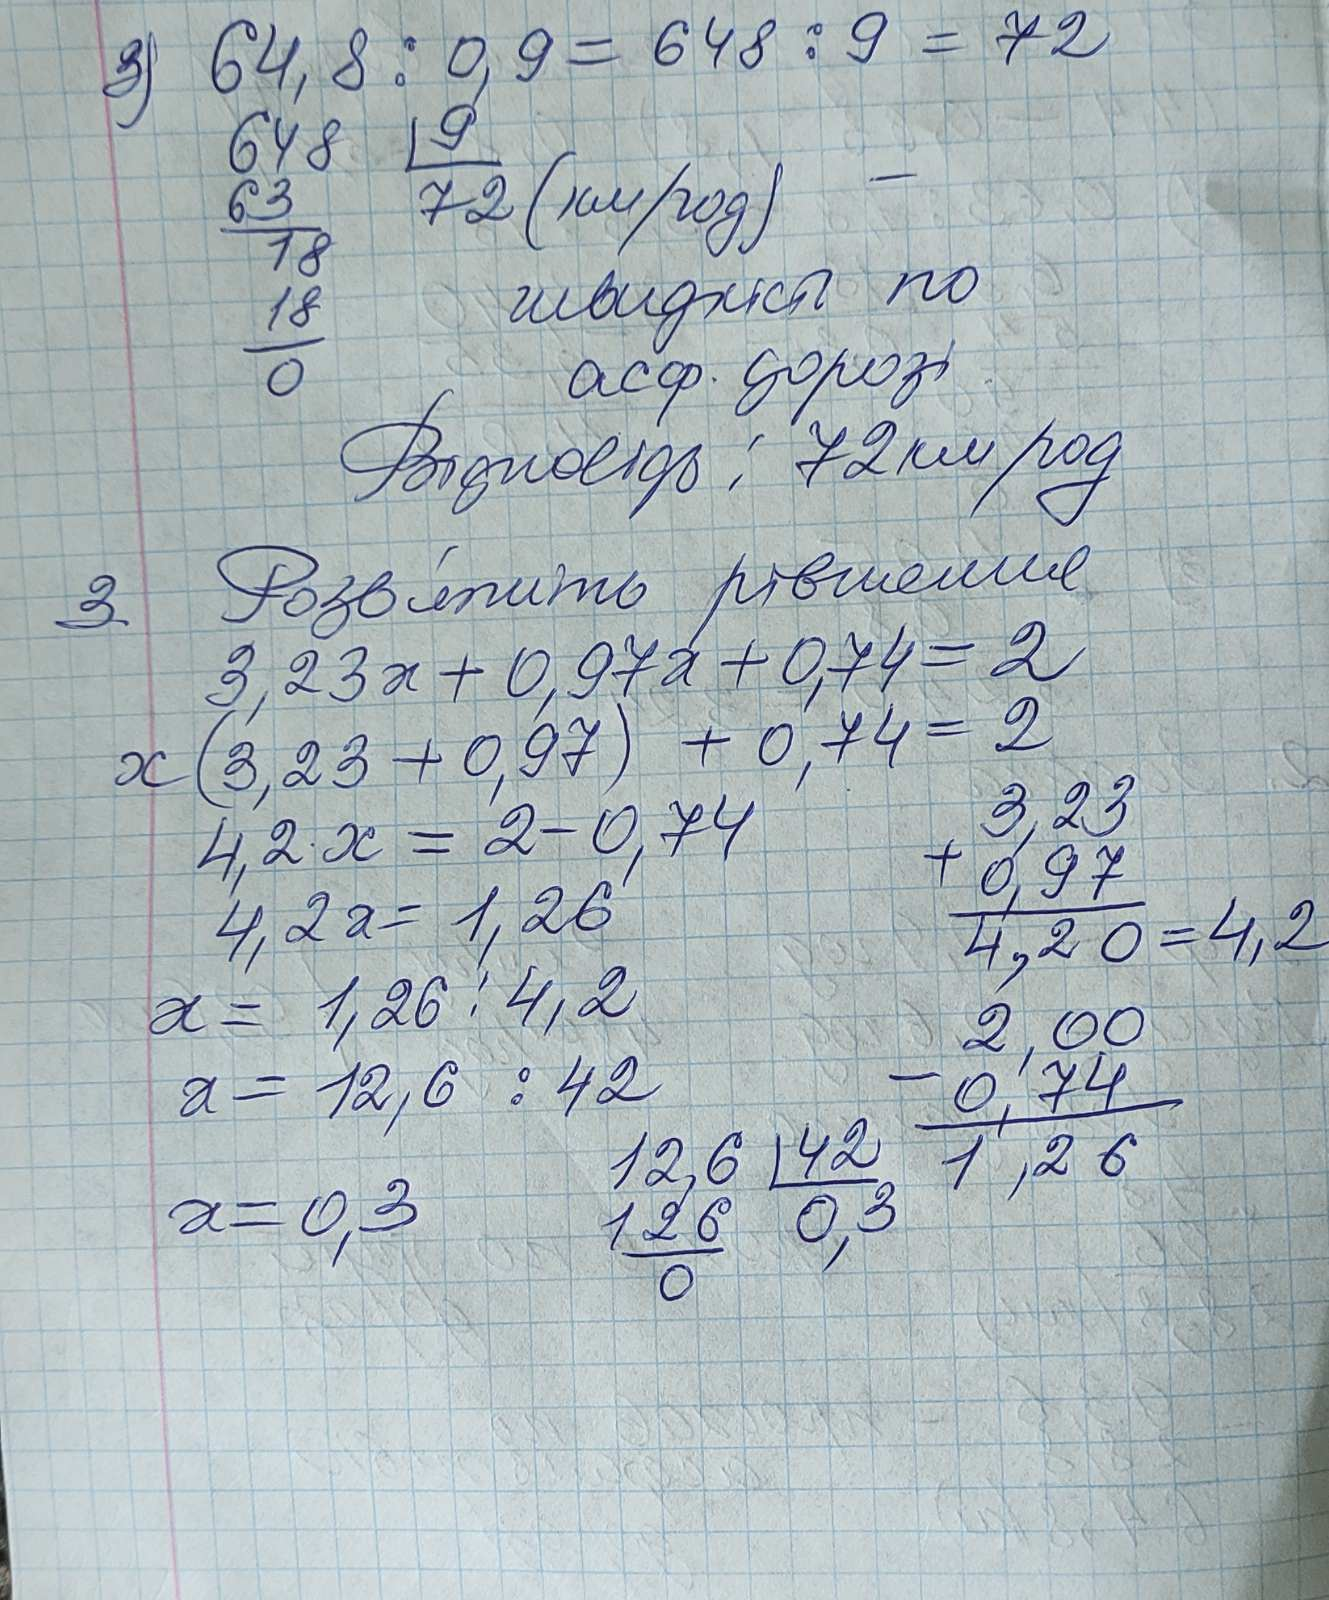 3) 64,8 : 0,9 = 648 : 9 = 72
648 9
63 72 (км/год) –
18
18 швидкість по
0 асф. дорозі
Відповідь: 72 км/год
3 Розв'яжіть рівняння
3,23x + 0,97x + 0,74 = 2
x (3,23 + 0,97) + 0,74 = 2
4,2 · x = 2 – 0,74
3,23
+ 0,97
4,20 = 4,2
4,2x = 1,26
x = 1,26 : 4,2
2,00
– 0,74
1,26
x = 12,6 : 42
12,6 42
126 0,3
0
x = 0,3